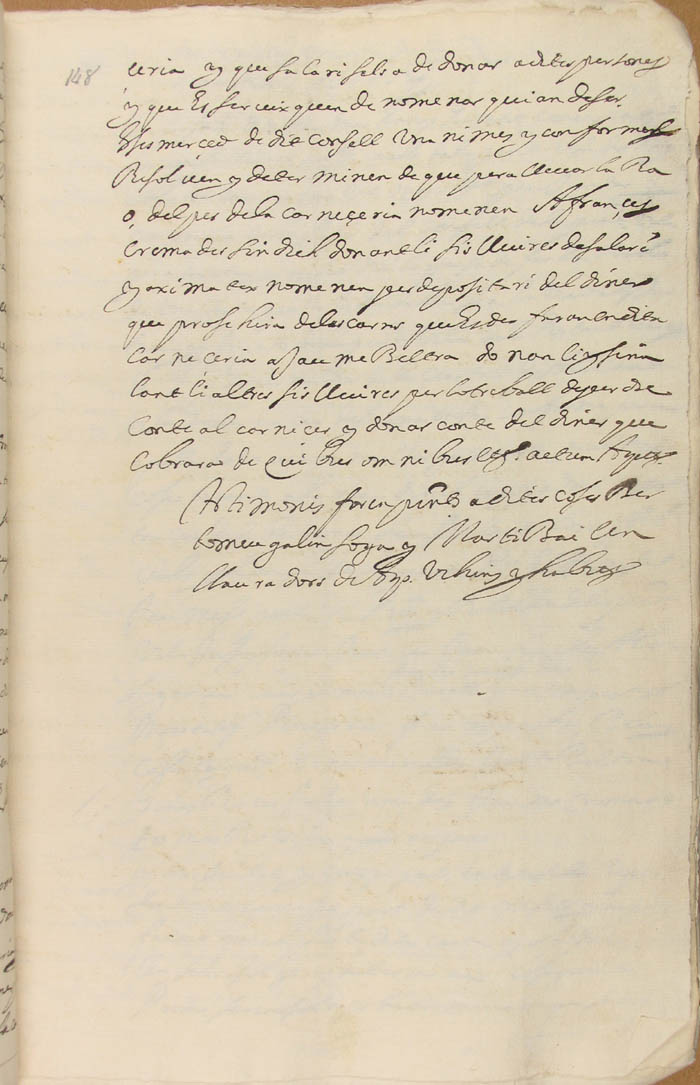 148
ceria y que salari sels a de donar a dites persones
y que es servixquen de nomenar qui an de ser.
E ses merces de dit consell unanimes y conformes
Resolüen y determinen de que pera llevar la Ra
o, del pes de la carneçeria nomenen A françes
Cremades sindich donantli sis lliures de salari
y aximateix nomenen per depositari del diner
que prosehira de les carns que es des faran en dita
carneceria a Jaume Beltra donantli y siña
lantli altres sis lliures per lo treball de per dit
conte al carnicer y donar conte del diner que
cobrara de quibus omnibus etc. actum Agost.
Testimonis foren presents a dites coses Ber
tomeu galinsoga y Marti Bailen
llauradors de Asp. vehins y habits